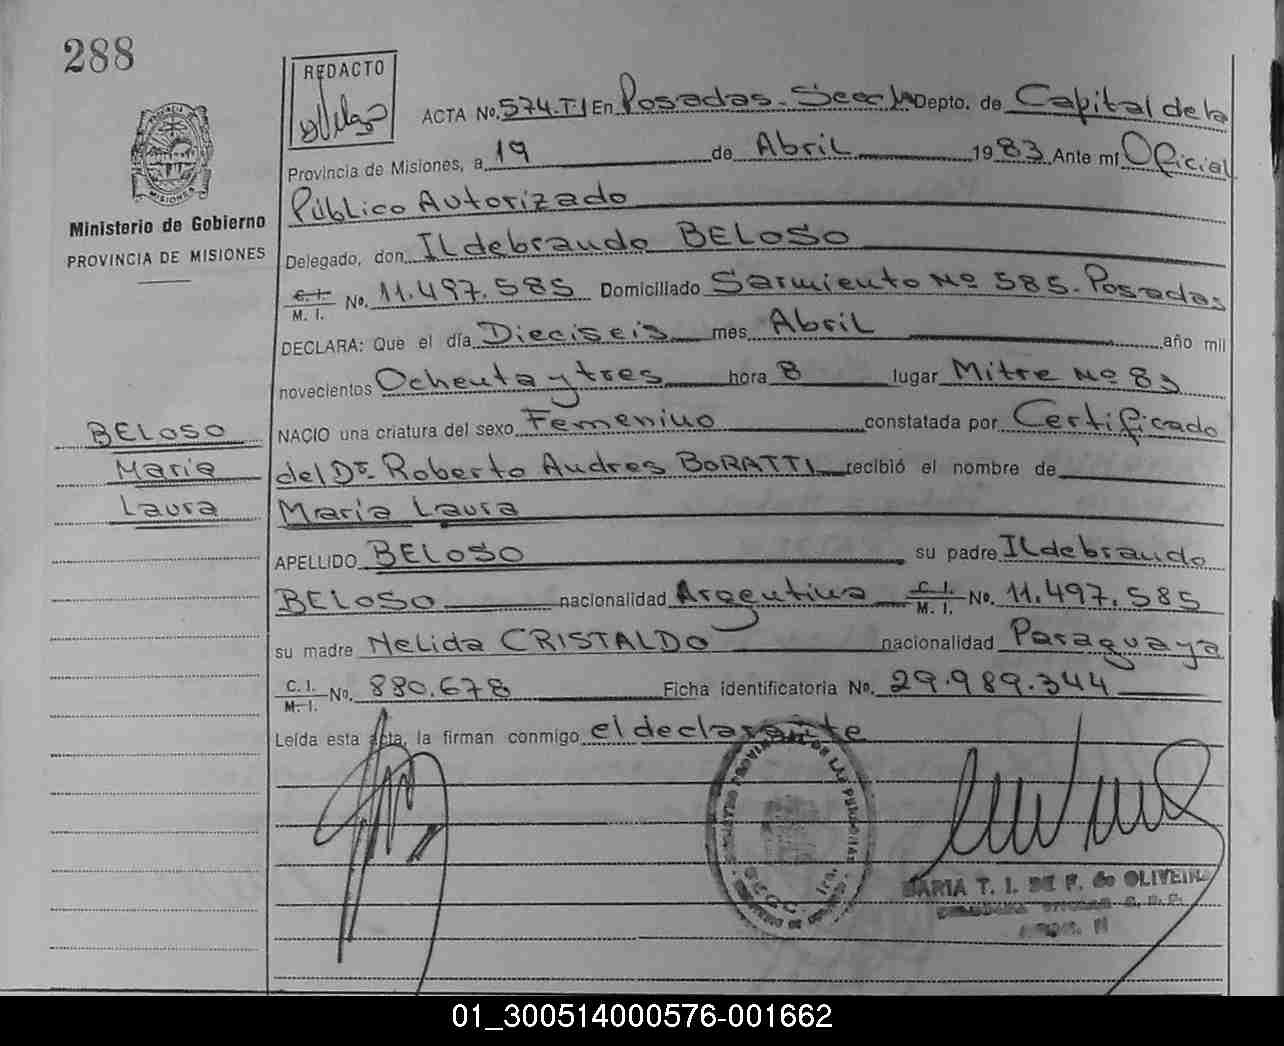 288
REDACTO
ACTA No. 574.T.I En Posadas. Secc 1a Depto. de Capital de la
Provincia de Misiones, a 19 de Abril 1983 Ante mí Oficial
Público Autorizado
MISIONES
Ministerio de Gobierno
PROVINCIA DE MISIONES
Delegado, don Ildebrando BELOSO
C. I.
M. I. No. 11.497.585 Domiciliado Sarmiento Nº 585. Posadas
DECLARA: Que el día Dieciseis mes Abril año mil
novecientos Ochenta y tres hora 8 lugar Mitre Nº 83
NACIO una criatura del sexo Femenino constatada por Certificado
del Dr. Roberto Andres BORATTI recibió el nombre de
María Laura
BELOSO
María
Laura
APELLIDO BELOSO su padre Ildebrando
BELOSO nacionalidad Argentina C. I.
M. I. No. 11.497.585
su madre Nelida CRISTALDO nacionalidad Paraguaya
C. I.
M. I. No. 880.678 Ficha identificatoria No. 29.989.344
Leída esta acta, la firman conmigo el declarante
REGISTRO PROVINCIAL DE LAS PERSONAS
SECC. 1ra.
MARIA T. I. DE F. de OLIVEIRA
01_300514000576-001662